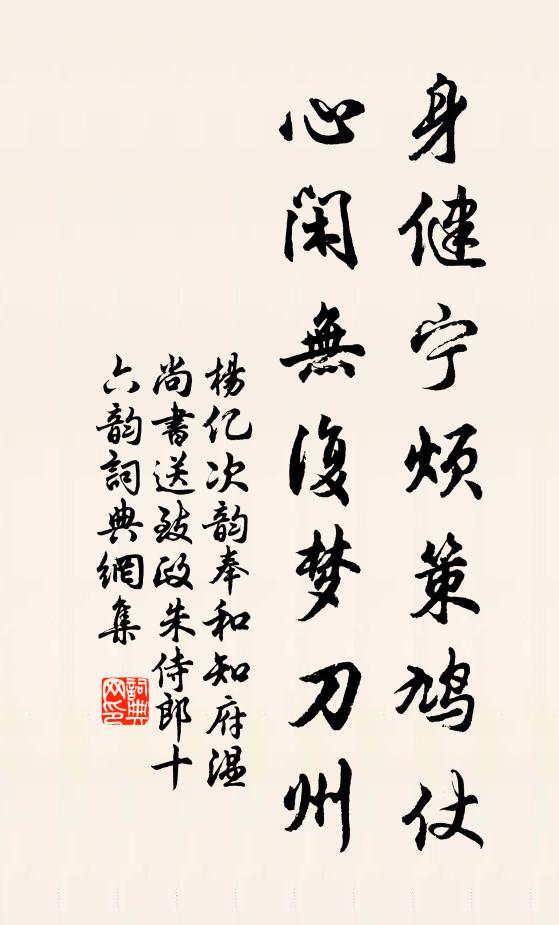 身健宁烦策鸠仗
心闲無復梦刀州
楊亿次韵奉和知府温
尚書送致政朱侍郎十
六韵詞典網集
詞典网印